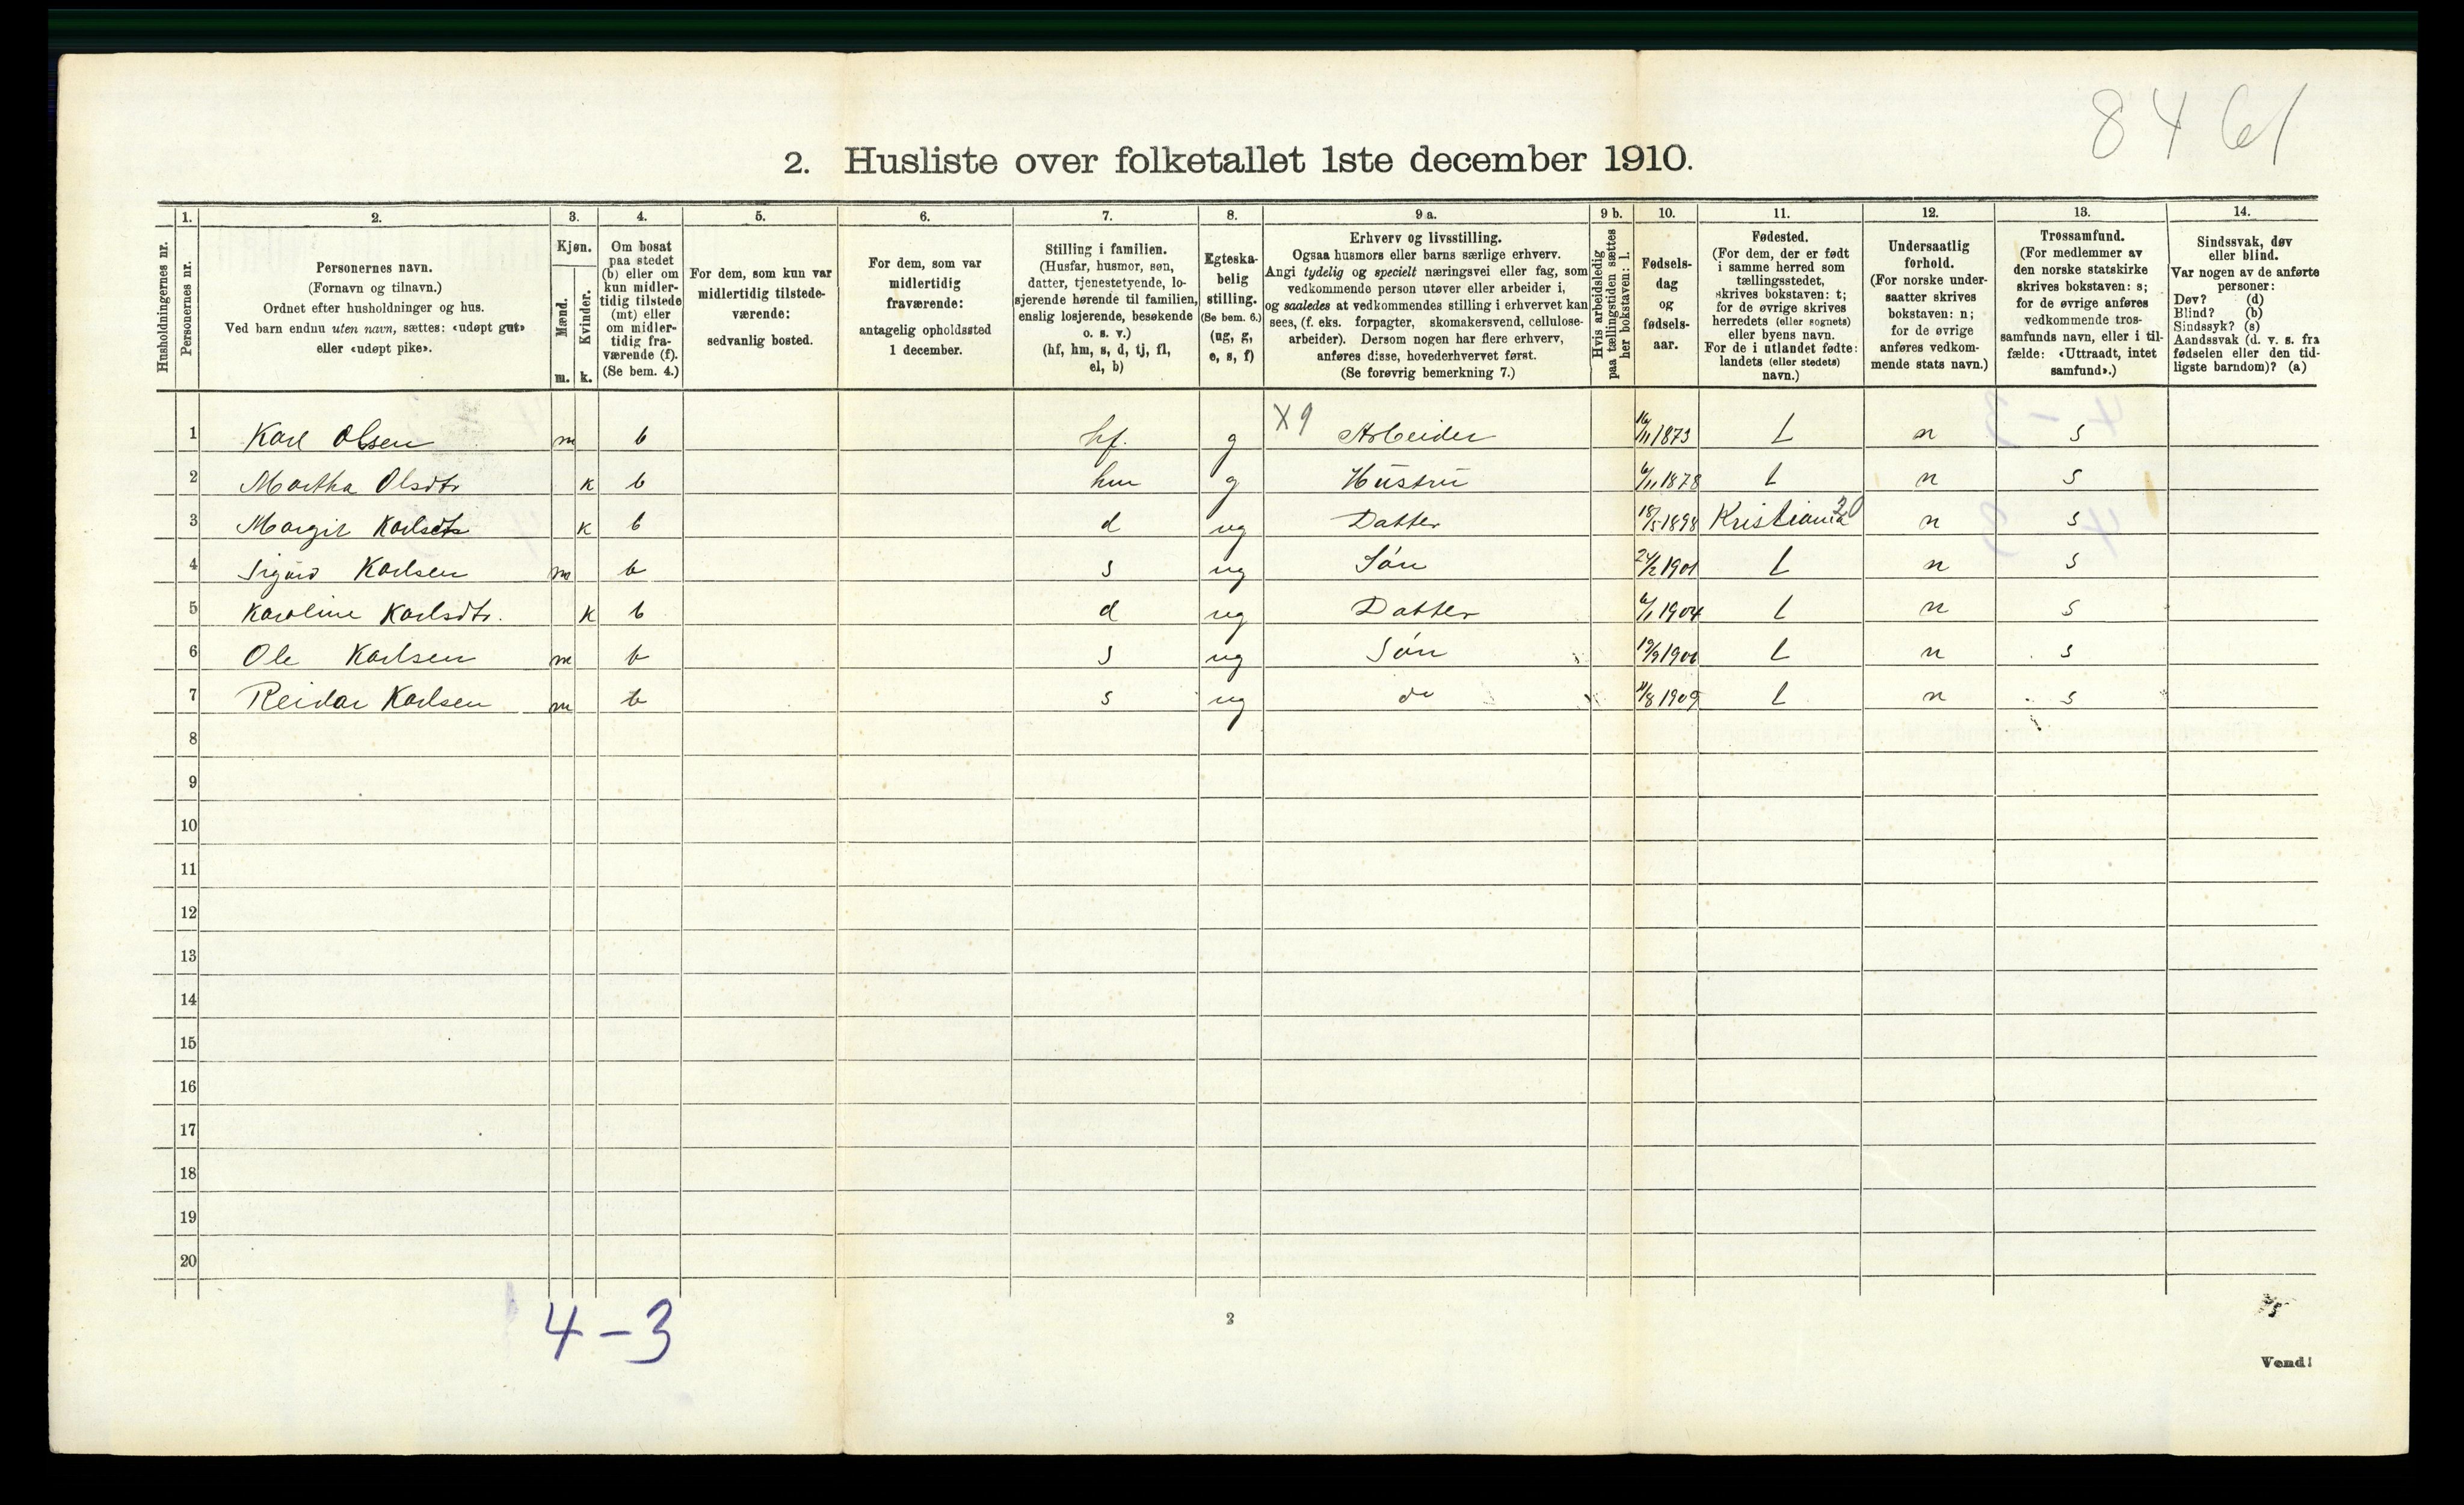 8461
2. Husliste over folketallet 1ste december 1910.
1. 2. 3. 4. 5. 6. 7. 8. 9 a. 9 b. 10. 11. 12. 13. 14.
Husholdningernes nr.
Personernes nr.
Personernes navn.
(Fornavn og tilnavn.)
Ordnet efter husholdninger og hus.
Ved barn endnu uten navn, sættes: «udøpt gut»
eller «udøpt pike».
Kjøn.
Mænd.
Kvinder.
m. k.
Om bosat
paa stedet
(b) eller om
kun midler-
tidig tilstede
(mt) eller
om midler-
tidig fra-
værende (f).
(Se bem. 4.)
For dem, som kun var
midlertidig tilstede-
værende:
sedvanlig bosted.
For dem, som var
midlertidig
fraværende:
antagelig opholdssted
1 december.
Stilling i familien.
(Husfar, husmor, søn,
datter, tjenestetyende, lo-
sjerende hørende til familien,
enslig losjerende, besøkende
o. s. v.)
(hf, hm, s, d, tj, fl,
el, b)
Egteska-
belig
stilling.
(Se bem. 6.)
(ug, g,
e, s, f)
Erhverv og livsstilling.
Ogsaa husmors eller barns særlige erhverv.
Angi tydelig og specielt næringsvei eller fag, som
vedkommende person utøver eller arbeider i,
og saaledes at vedkommendes stilling i erhvervet kan
sees, (f. eks. forpagter, skomakersvend, cellulose-
arbeider). Dersom nogen har flere erhverv,
anføres disse, hovederhvervet først.
(Se forøvrig bemerkning 7.)
Hvis arbeidsledig
paa tællingstiden sættes
her bokstaven: l.
Fødsels-
dag
og
fødsels-
aar.
Fødested.
(For dem, der er født
i samme herred som
tællingsstedet,
skrives bokstaven: t;
for de øvrige skrives
herredets (eller sognets)
eller byens navn.
For de i utlandet fødte:
landets (eller stedets)
navn.)
Undersaatlig
forhold.
(For norske under-
saatter skrives
bokstaven: n;
for de øvrige
anføres vedkom-
mende stats navn.)
Trossamfund.
(For medlemmer av
den norske statskirke
skrives bokstaven: s;
for de øvrige anføres
vedkommende tros-
samfunds navn, eller i til-
fælde: «Uttraadt, intet
samfund».)
Sindssvak, døv
eller blind.
Var nogen av de anførte
personer:
Døv? (d)
Blind? (b)
Sindssyk? (s)
Aandssvak (d. v. s. fra
fødselen eller den tid-
ligste barndom)? (a)
1 Karl Olsen m b hf. g X9 Arbeider 16/11 1873 t n s
2 Martha Olsdtr k b hm g Hustru 6/11 1878 t n s
3 Margit Karlsdtr k b d ug Datter 18/5 1898 Kristiania 20 n s
4 Sigurd Karlsen m b s ug Søn 24/2 1901 t n s
5 Karoline Karlsdtr. k b d ug Datter 6/1 1904 t n s
6 Ole Karlsen m b s ug Søn 19/9 1906 t n s
7 Reidar Karlsen m b s ug do 11/8 1909 t n s
8
9
10
11
12
13
14
15
16
17
18
19
20
4-3
2
Vend!